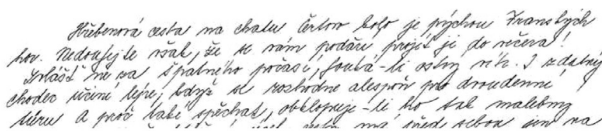 Hřebenová cesta na chatu Čertovo kolo je pýchou Zvanských
hor. Nedoufejte však, že se vám podaří projít ji do večera!
Zvlášť ne za špatného počasí, fouká-li ostrý vítr. I zdatný
chodec učiní lépe, když se rozhodne alespoň pro dvoudenní
túru. A proč také spěchat, obklopuje-li ho tak malebný
má před sebou jen na